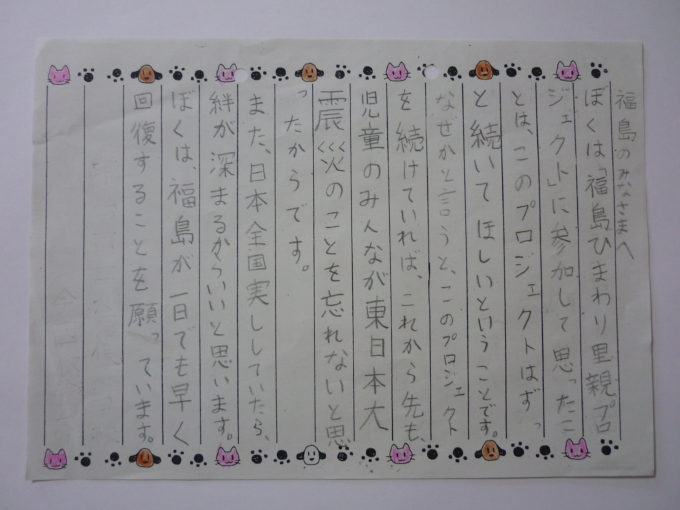 福島のみなさまへ
ぼくは「福島ひまわり里親プロ
ジェクト」に参加して思ったこ
とは、このプロジェクトはずっ
と続いてほしいということです。
なぜかと言うと、このプロジェクト
を続けていれば、これから先も、
児童のみんなが東日本大
震災のことを忘れないと思
ったからです。
また、日本全国実ししていたら、
絆が深まるからいいと思います。
ぼくは、福島が一日でも早く
回復することを願っています。